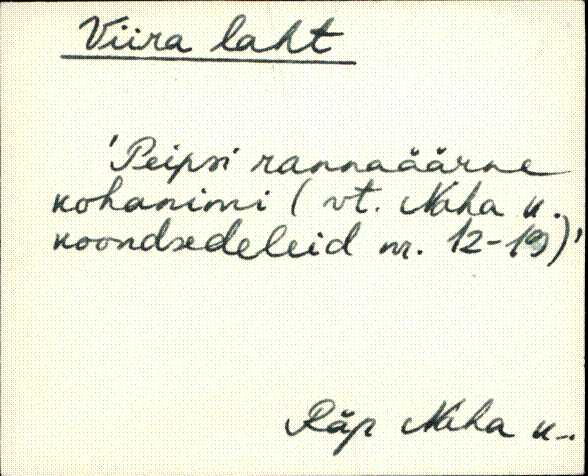 Viira laht
'Peipsi rannaäärne
kohanimi (vt. Naha k.
koondsedeleid nr. 12-19)'
Räp Naha k.